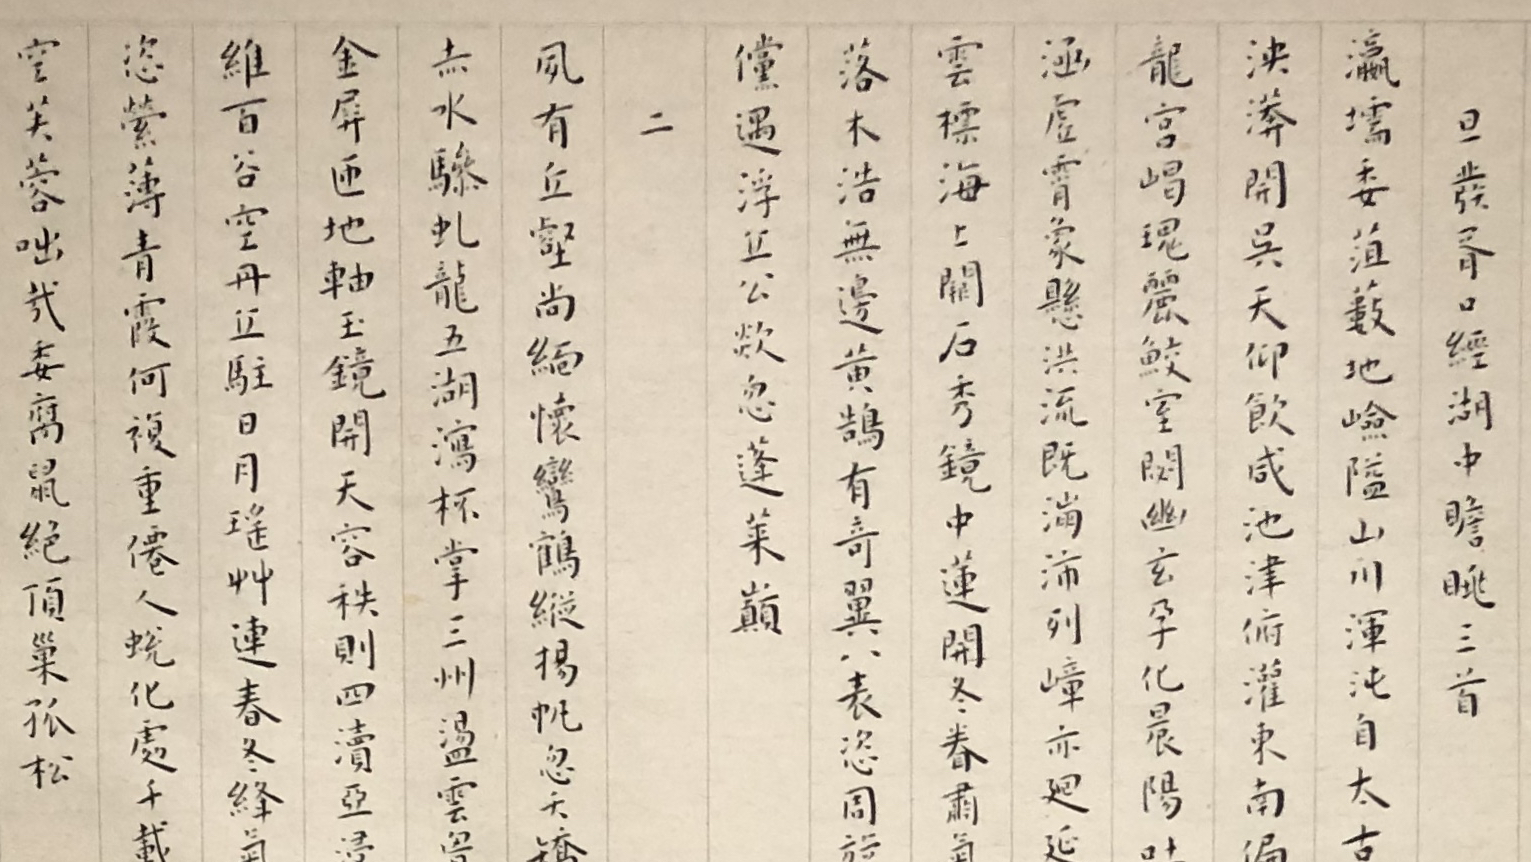 旦發胥口經湖中瞻眺三首
瀛壖委菹藪地嶮隘山川渾沌自太古
泱漭開吳天仰飲咸池津俯灌東南偏
龍宮嵑瑰麗鮫室閟幽玄孕化晨陽吐
涵虛霄象懸洪流既滿沛列嶂亦廻延
雲標海上關石秀鏡中蓮開冬眷肅氣
落木浩無邊黃鵠有奇翼八表恣周旋
儻遇浮丘公欻忽蓬萊巔
二
夙有丘壑尚緬懷鸞鶴縱揚帆忽夭矯
赤水驂虬龍五湖瀉杯掌三州盪雲
金屏匝地軸玉鏡開天容秩則四瀆亞浸
維百谷空丹丘駐日月瑤艸連春冬絳氣
恣縈薄青霞何複重僊人蛻化處千載
空芙蓉咄哉委腐鼠絕頂巢孤松